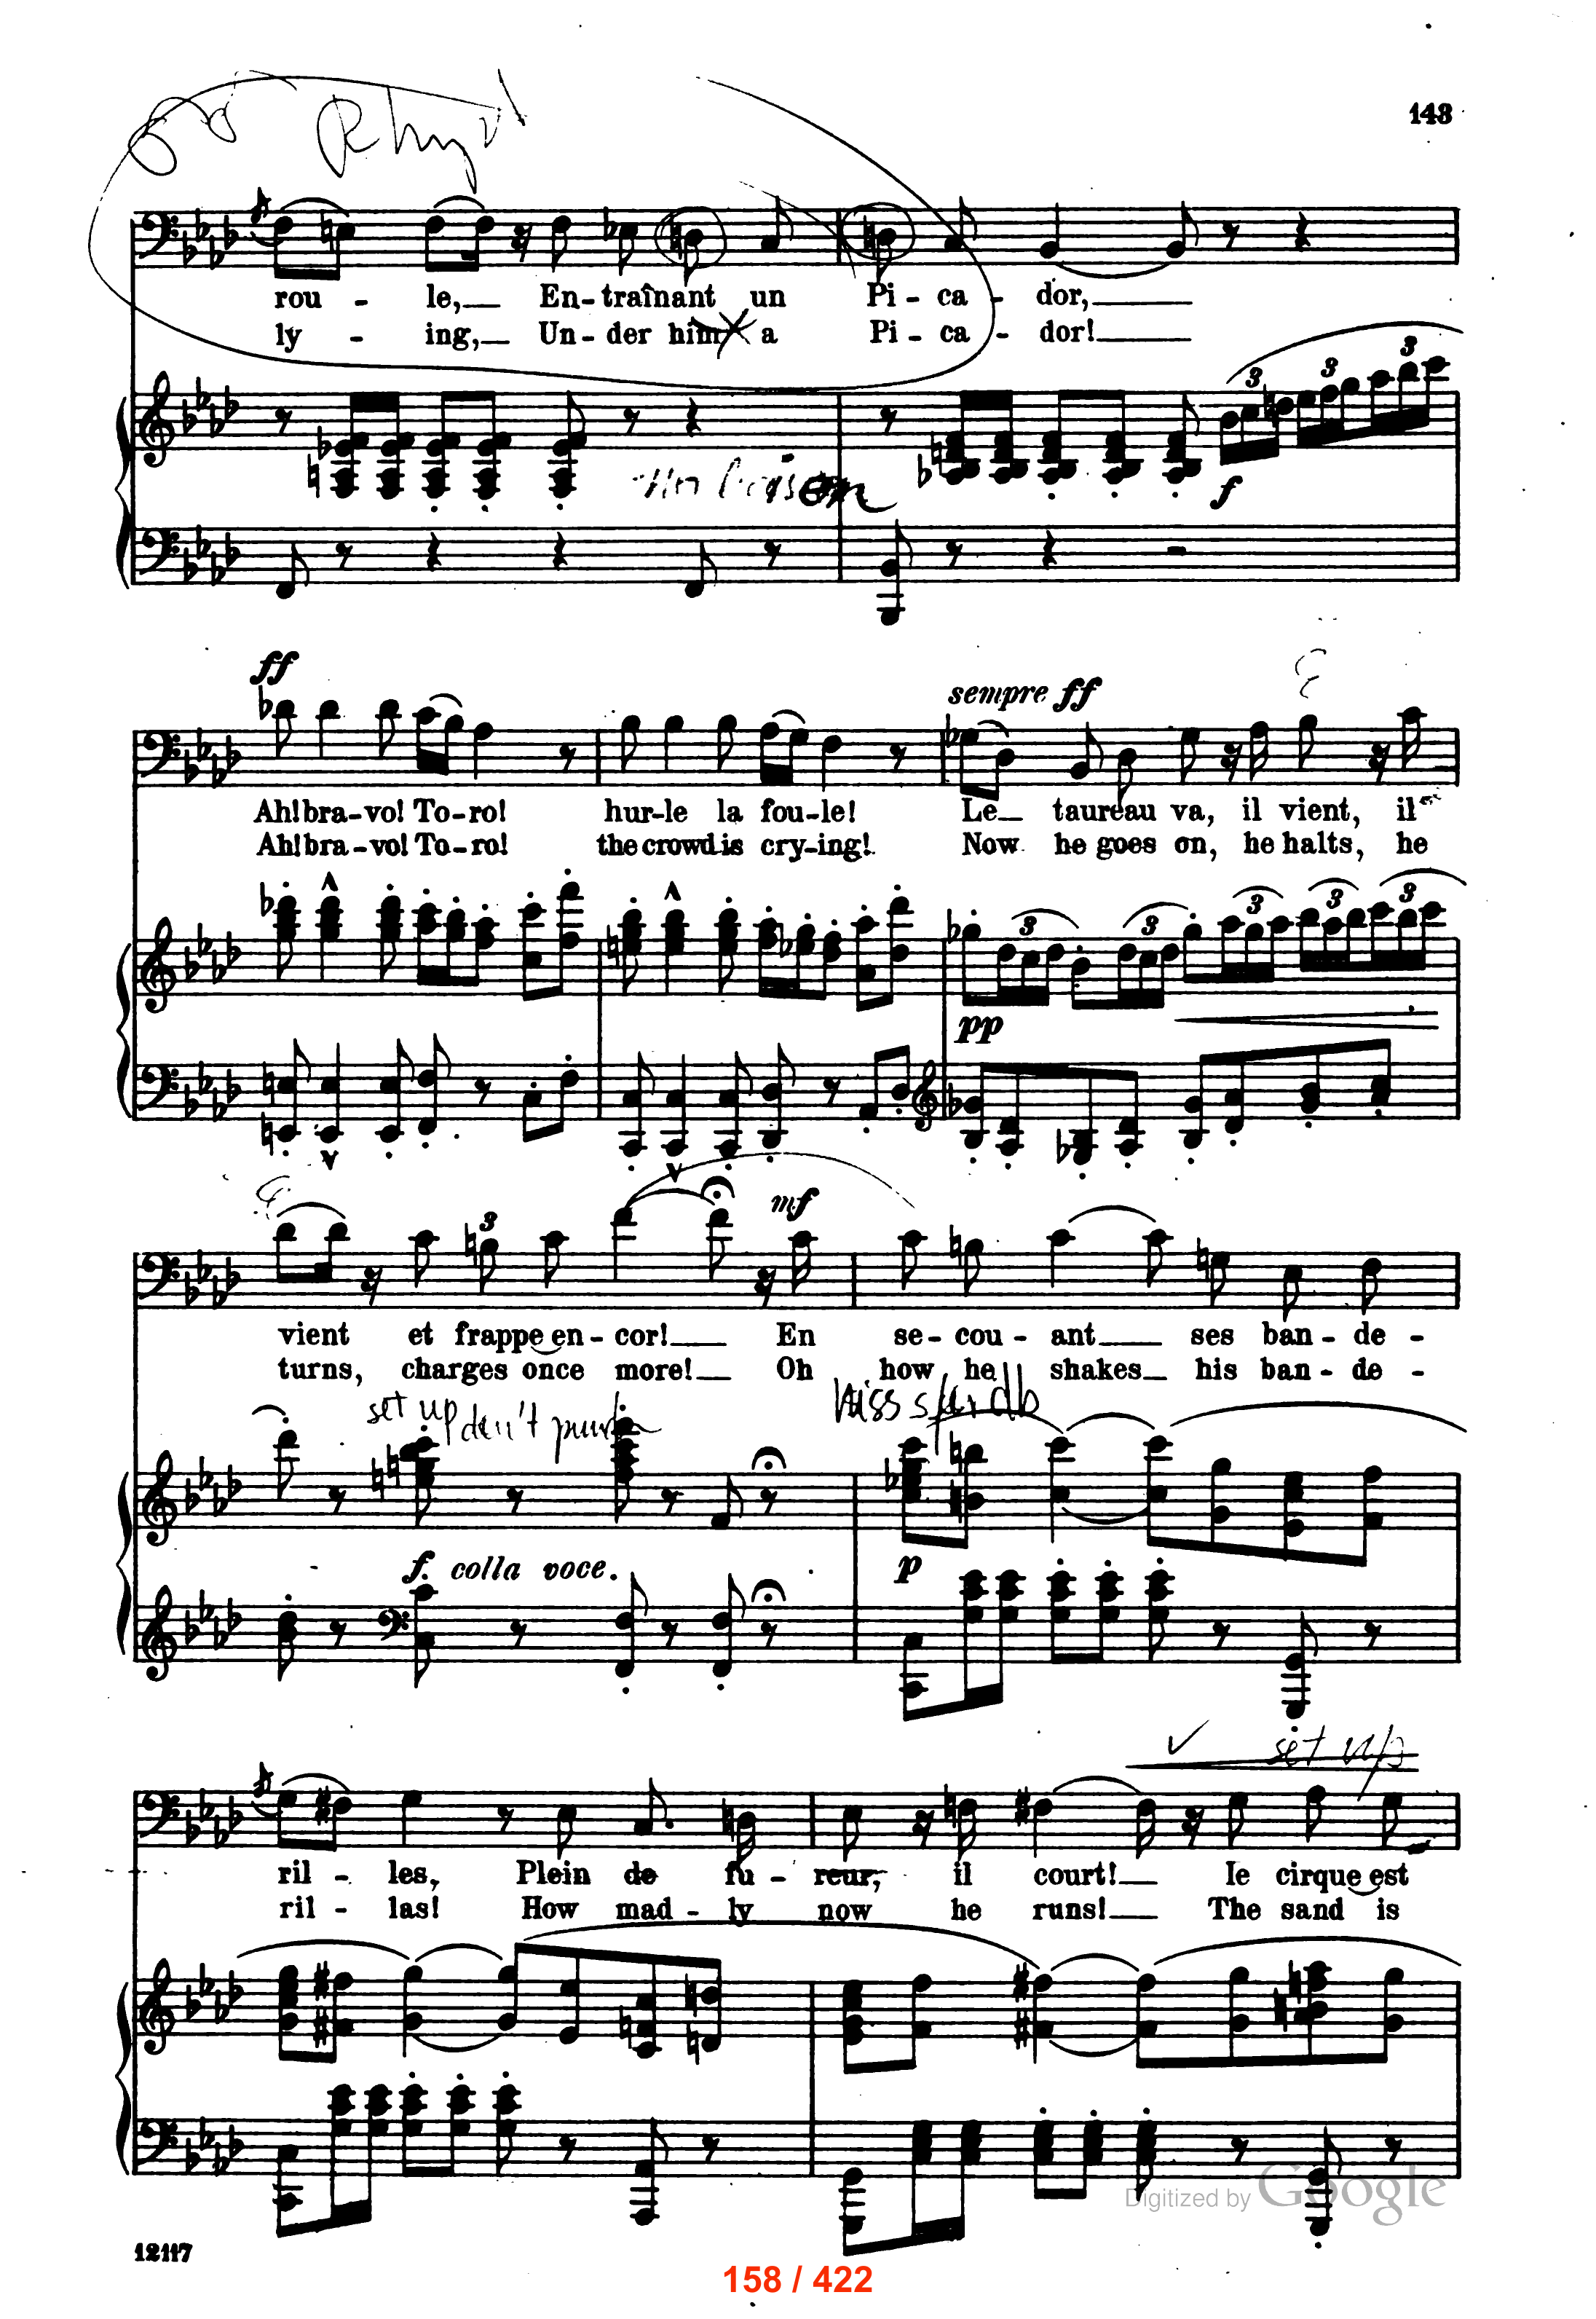 143
Rhyt
rou - le, En-traînant un Pi - ca - dor,
ly - ing, Un-der him a Pi - ca - dor!
3 3 3
f
ff
sempre ff
Ah! bra-vo! To-ro! hur-le la fou-le! Le taureau va, il vient, il
Ah! bra-vo! To-ro! the crowd is cry-ing! Now he goes on, he halts, he
3 3 3 3 3
pp
3
mf
vient et frappe en - cor! En se - cou - ant ses ban - de -
turns, charges once more! Oh how he shakes his ban - de -
set up don't
f colla voce.
p
set up
ril - les, Plein de fu - reur, il court! le cirque est
ril - las! How mad - ly now he runs! The sand is
Digitized by Google
12117
158 / 422